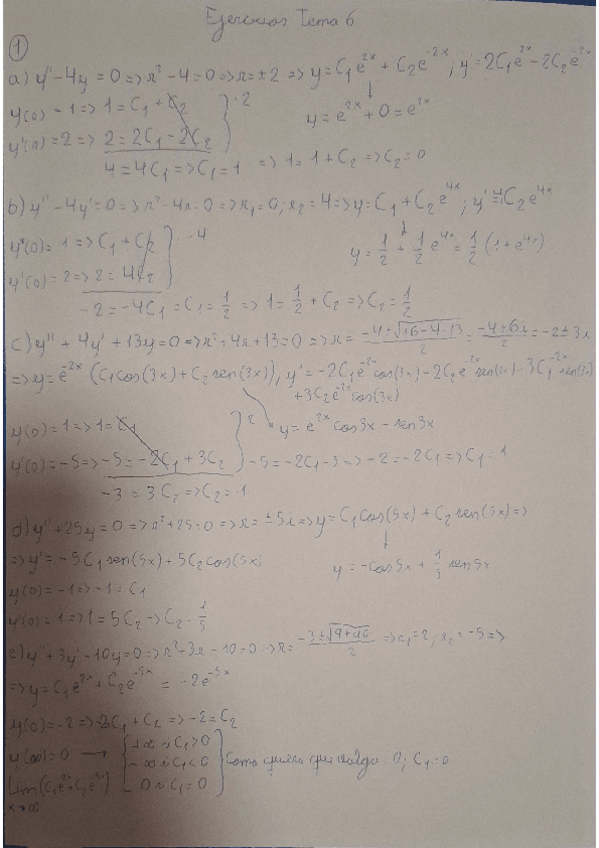 Ejercicios Tema 6
1
a) y'' - 4y = 0 => r² - 4 = 0 => r = ±2 => y = C₁e^{2x} + C₂e^{-2x}; y' = 2C₁e^{2x} - 2C₂e^{-2x}
y(0) = 1 => 1 = C₁ + C₂ } ·2
y = e^{2x} + 0 = e^{2x}
y'(0) = 2 => 2 = 2C₁ - 2C₂
4 = 4C₁ => C₁ = 1 => 1 = 1 + C₂ => C₂ = 0
b) y'' - 4y' = 0 => r² - 4r = 0 => r₁ = 0; r₂ = 4 => y = C₁ + C₂e^{4x}; y' = 4C₂e^{4x}
y(0) = 1 => C₁ + C₂ } ·-4
y = 1/2 + 1/2 e^{4x} = 1/2 (1 + e^{4x})
y'(0) = 2 => 2 = 4C₂
-2 = -4C₁ = C₁ = 1/2 => 1 = 1/2 + C₂ => C₂ = 1/2
c) y'' + 4y' + 13y = 0 => r² + 4r + 13 = 0 => r = (-4 ± √(16 - 4·13))/2 = (-4 ± 6i)/2 = -2 ± 3i
=> y = e^{-2x} (C₁cos(3x) + C₂sen(3x)); y' = -2C₁e^{-2x}cos(3x) - 2C₂e^{-2x}sen(3x) - 3C₁e^{-2x}sen(3x)
+ 3C₂e^{-2x}cos(3x)
y(0) = 1 => 1 = C₁ } 2
y = e^{2x} cos3x - sen3x
y'(0) = -5 => -5 = -2C₁ + 3C₂
-5 = -2C₁ - 3 => -2 = -2C₁ => C₁ = 1
-3 = 3C₂ => C₂ = -1
d) y'' + 25y = 0 => r² + 25 = 0 => r = ±5i => y = C₁cos(5x) + C₂sen(5x) =>
=> y' = -5C₁sen(5x) + 5C₂cos(5x);
y = -cos5x + 1/5 sen5x
y(0) = -1 => -1 = C₁
y'(0) = 1 => 1 = 5C₂ -> C₂ = 1/5
e) y'' + 3y' - 10y = 0 => r² + 3r - 10 = 0 -> r = (-3 ± √(9 + 40))/2 => r₁ = 2; r₂ = -5 =>
=> y = C₁e^{2x} + C₂e^{-5x} = -2e^{-5x}
y(0) = -2 => -2 C₁ + C₂ => -2 = C₂
y(∞) = 0 -> { +∞ si C₁ > 0
-∞ si C₁ < 0 } Como quiero que valga 0; C₁ = 0
lim (C₁e^{2x} + C₂e^{-5x}) 0 si C₁ = 0
x→∞